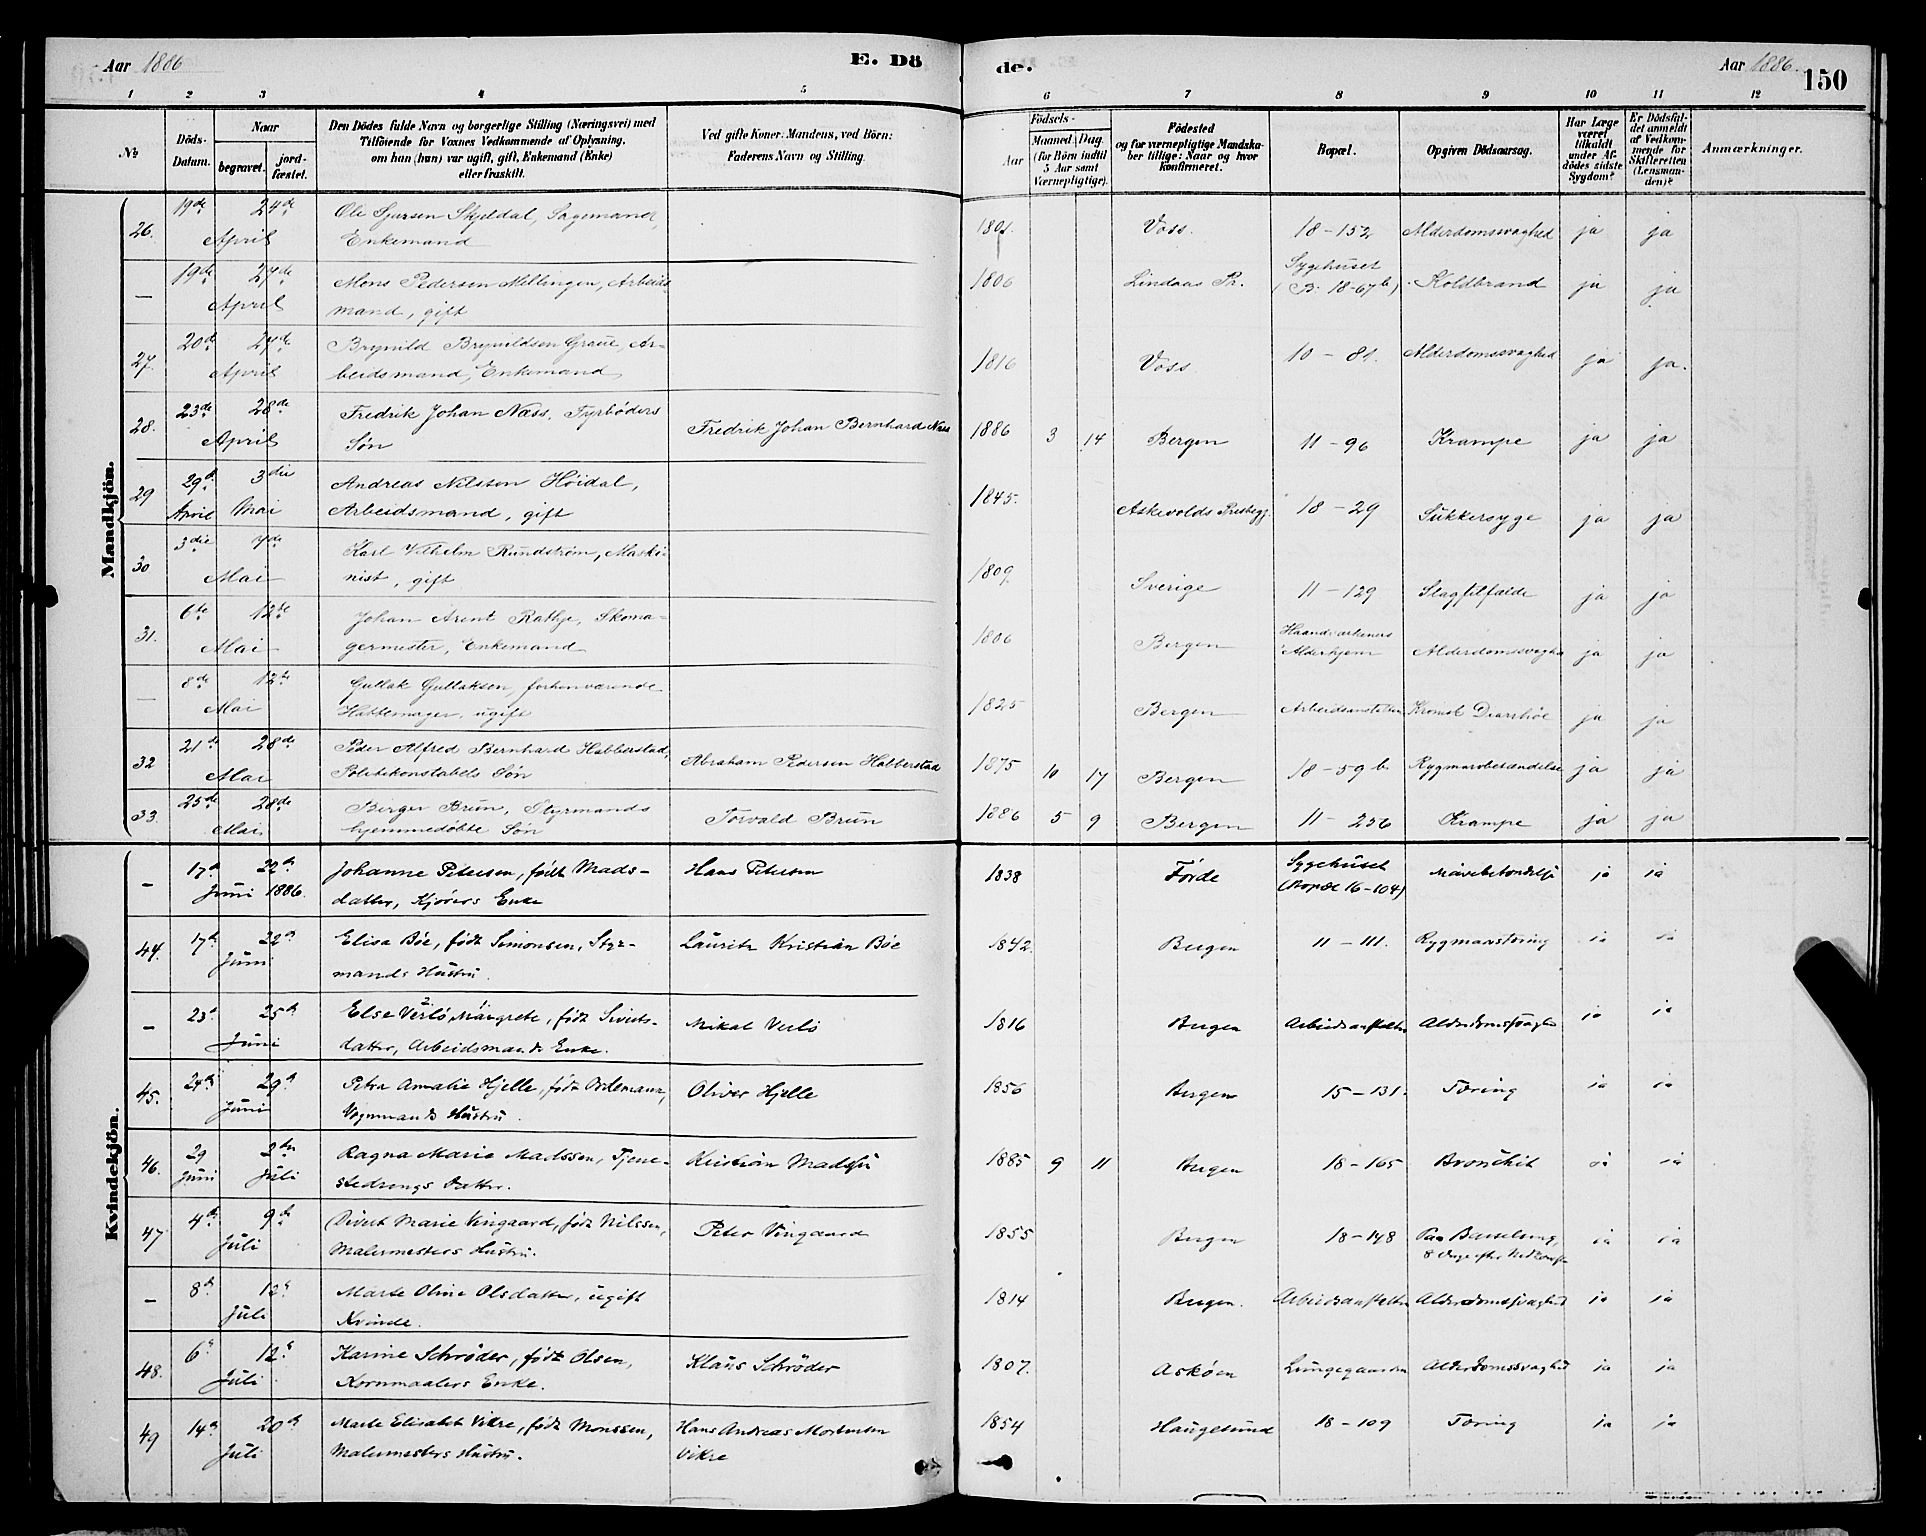 Aar 1886 E. Dö
de. Aar 1886. 150
1 2 3 4 5 6 7 8 9 10 11 12
No
Döds-Datum.
Naar
begravet. jordfæstet.
Den Dödes fulde Navn og borgerlige Stilling (Næringsvei) med
Tilföiende for Voxnes Vedkommende af Oplysning,
om han (hun) var ugift, gift, Enkemand (Enke)
eller fraskilt.
Ved gifte Koner: Mandens, ved Börn:
Faderens Navn og Stilling.
Födsels-
Aar
Maaned. Dag.
(for Börn indtil
5 Aar samt
Værnepligtige).
Födested
og for værnepligtige Mandska-
ber tillige: Naar og hvor
konfirmeret.
Bopæl.
Opgiven Dödsaarsag.
Har Læge
været
tilkaldt
under Af-
dödes sidste
Sygdom?
Er Dödsfal-
det anmeldt
af Vedkom-
mende for
Skifteretten
(Lensman-
den)?
Anmærkninger.
Mandkjön.
26. 19de 24de April Ole Sjursen Skjeldal, Sagemand, Enkemand 1801. Voss. 18-152 Alderdomssvaghed ja ja
— 19de 27de April Mons Pedersen Mellingen, Arbeidsmand, gift 1806 Lindaas Pr. Sygehuset (B. 18-67b) Koldbrand ja ja
27. 20de 27de April Brynild Brynildsen Graue, Arbeidsmand, Enkemand 1816 Voss 10-81. Alderdomssvaghed ja ja.
28. 23de 28de April Fredrik Johan Næss, Fyrbøders Søn Fredrik Johan Bernhard Næss 1886 3 14 Bergen 11-96 Krampe ja ja
29 29de April 3die Mai Andreas Nilsson Høidal, Arbeidsmand, gift 1845. Askevolds Prestegj. 18-29 Sukkersyge ja ja
30 3die 7de Mai Karl Vilhelm Rundstrøm, Maskinist, gift 1809. Sverige 11-129 Slagtilfælde ja ja
31. 6te 12te Mai Johan Arent Rathje, Skomagermester, Enkemand 1806 Bergen Haandværkeres Alderhjem Alderdomssvaghed ja ja
— 8de 12te Mai Gullak Gullaksen, forhenværende Hattemager, ugift 1825 Bergen Arbeidsanstalten Kronisk Diarrhöe ja ja
32 21de 28de Mai Peder Alfred Bernhard Habberstad, Politikonstabels Søn Abraham Pedersen Habberstad 1875 10 17 Bergen 18-59b Rygmarvbetændelse ja ja
33. 25de 28de Mai Berger Brun, Styrmands hjemmedøbte Søn Torvald Brun 1886 5 9 Bergen 11-256 Krampe ja ja
Kvindekjön.
— 17de 22de Juni 1886. Johanne Petersen, født Madsdatter, Kjørers Enke Hans Petersen 1838 Førde Sygehuset (Bopæl 16-104) Mavebetændelse ja ja
44. 17de 22de Juni Elisa Böe, født Simonsen, Styrmands Hustru. Lauritz Kristian Böe 1842. Bergen 11-111. Rygmarvstæring ja ja
— 23de 25de Juni Else Verlø 2 Margrete, født Sivertsdatter, Arbeidsmands Enke. Mikal Verlø 1816 Bergen Arbeidsanstalten Alderdomssvaghed ja ja
45. 24de 29de Juni Petra Amalie Hjelle, født Ordemann, Vognmands Hustru. Oliver Hjelle 1856 Bergen 15-131. Tæring ja ja
46. 29 Juni 2den Juli Ragna Marie Madssen, Tjenestedrengs Datter. Kristian Madssen 1885 9 11 Bergen 18-165 Bronchit ja ja
47 4de 9de Juli Sivert Marie Vingaard, født Nilssen, Malermesters Hustru. Peter Vingaard 1855 Bergen 18-148 Paa Barselseng, 8 Dage efter ja ja
— 8de 12te Juli Marte Oline Olsdatter, ugift Kvinde. 1814 Bergen. Arbeidsanstalten Alderdomssvaghed ja ja
48. 6te 12te Juli Karine Schrøder, født Olsen, Kornmaalers Enke. Klaus Schrøder 1807. Askøen Lungegaarden Alderdomssvaghed ja ja
49 14de 20de Juli Marte Elisabet Vikre, født Monssen, Malermesters Hustru. Hans Andreas Mortensen Vikre 1854 Haugesund 18-109 Tæring ja ja